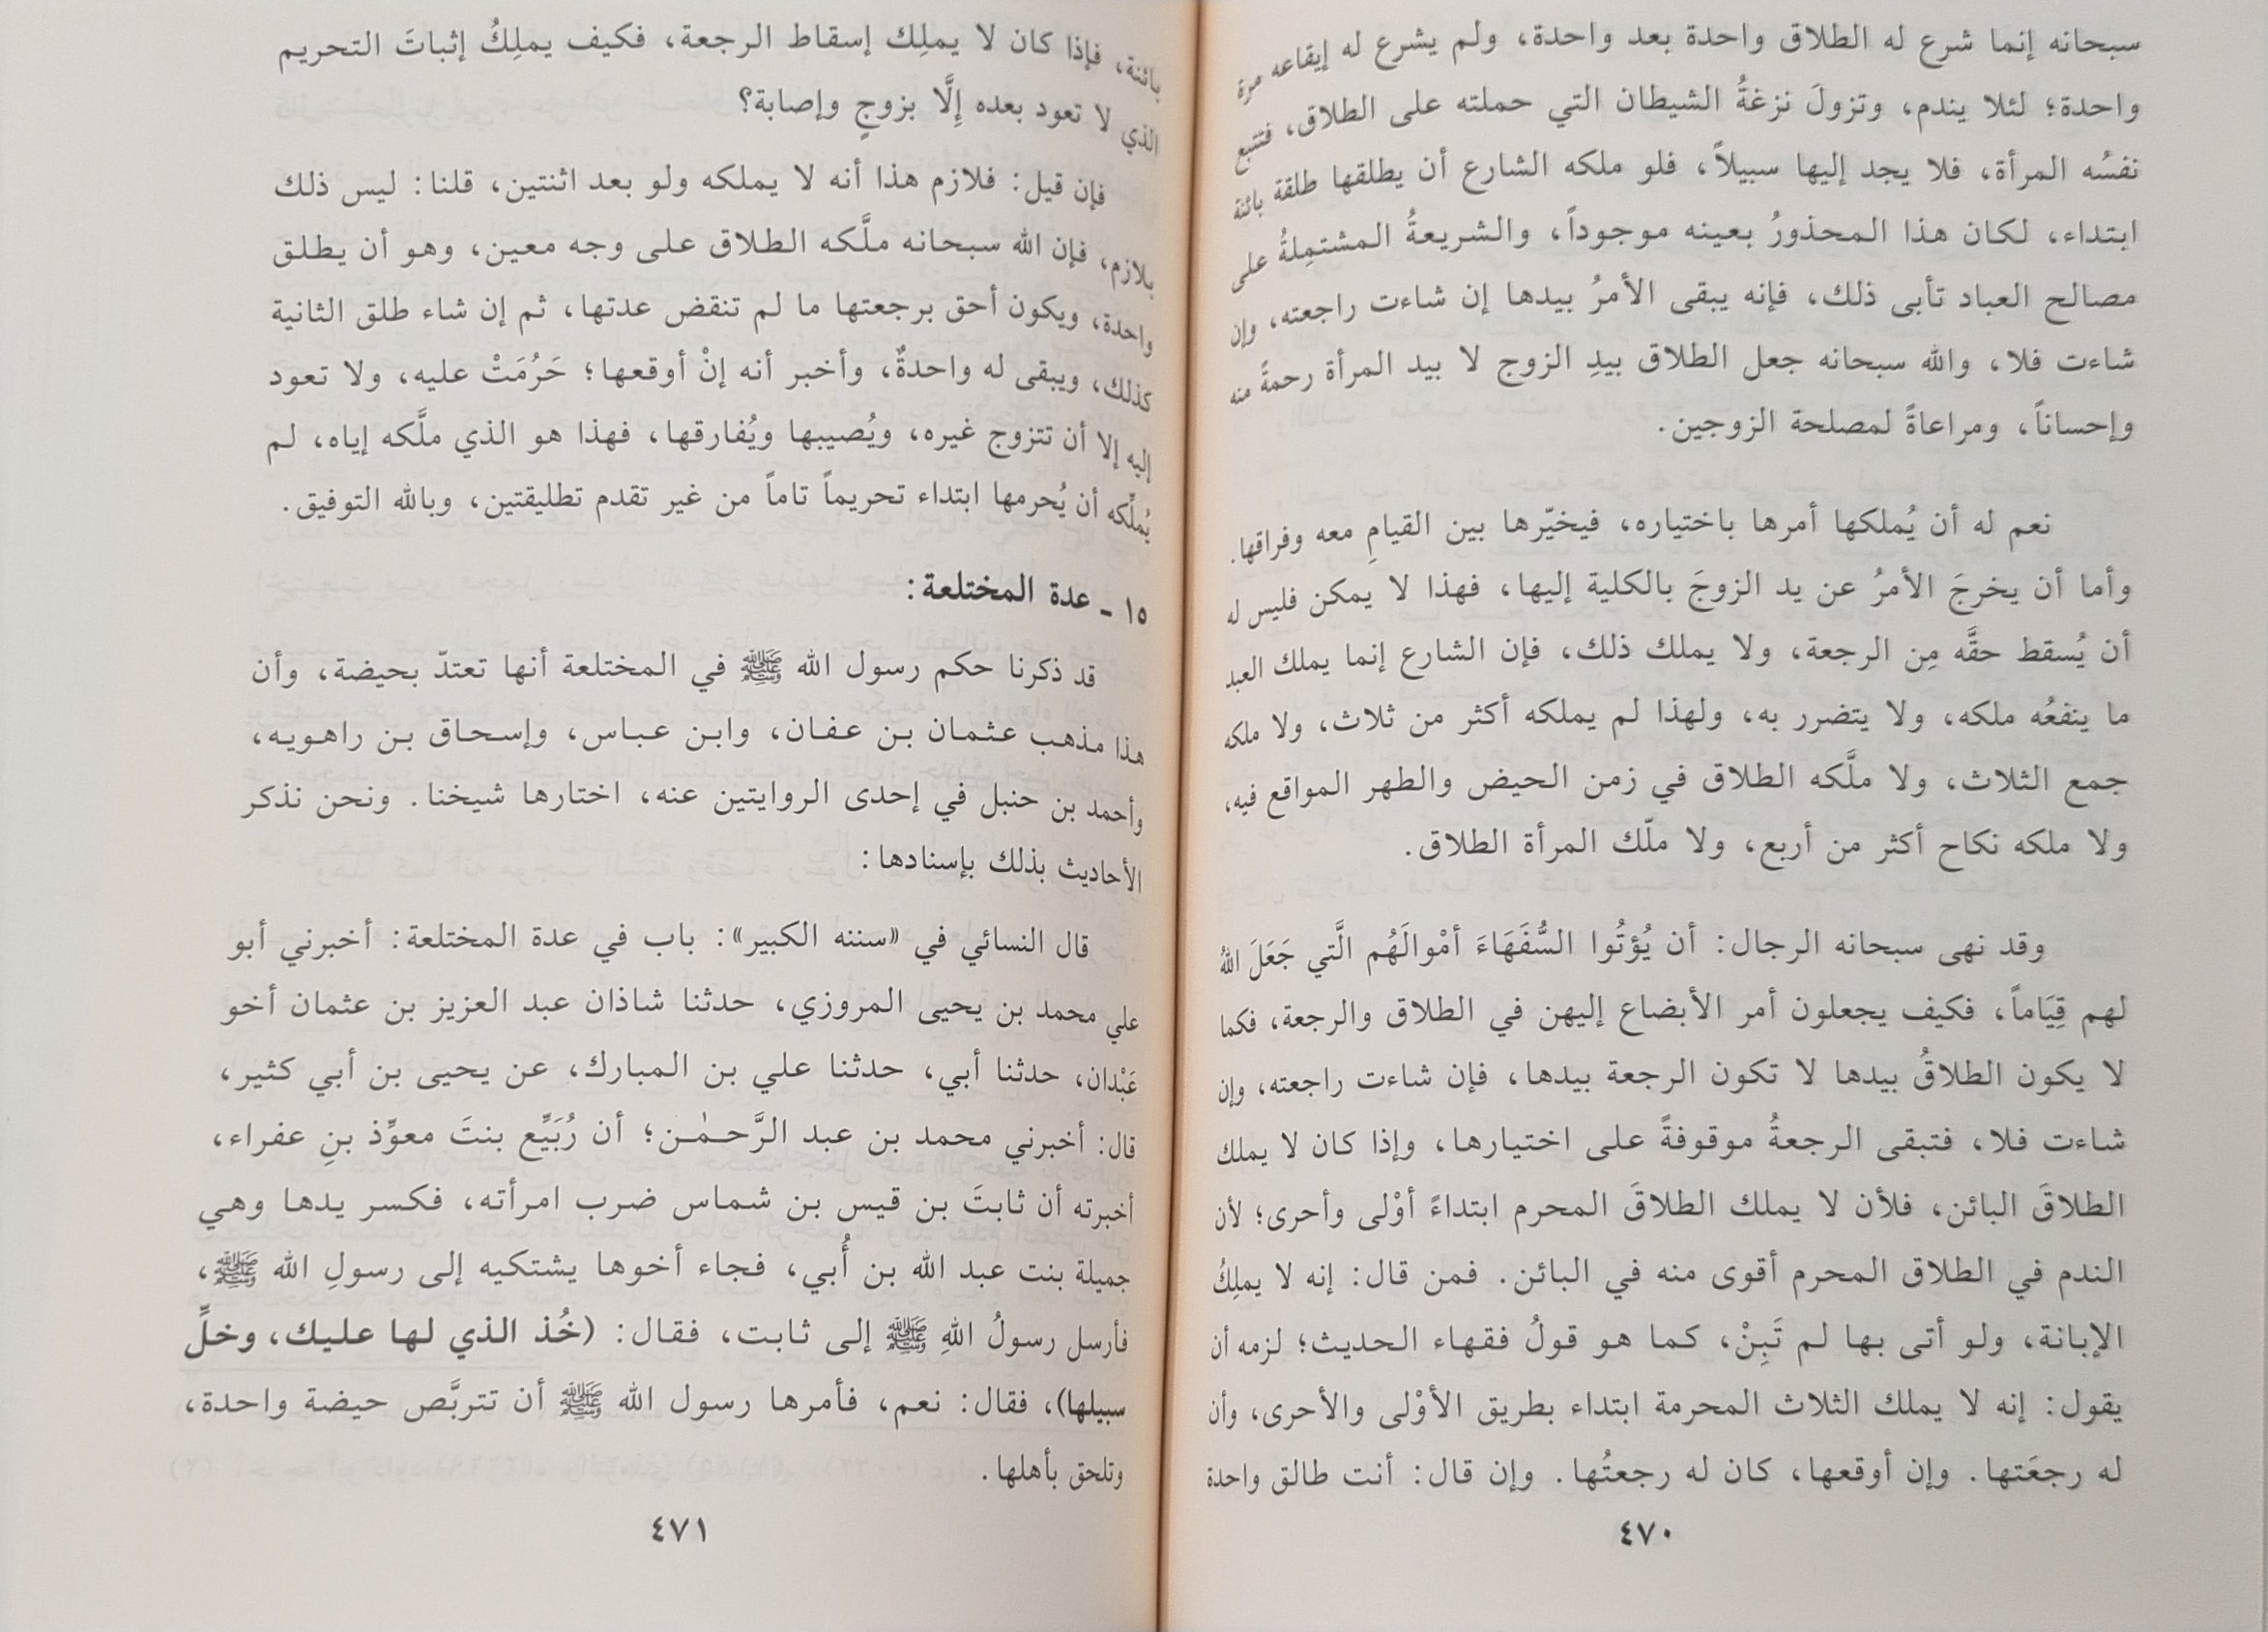 سبحانه إنما شرع له الطلاق واحدة بعد واحدة، ولم يشرع له إيقاعه مرة
واحدة؛ لئلا يندم، وتزولَ نزغةُ الشيطان التي حملته على الطلاق، فتتبع
نفسُه المرأة، فلا يجد إليها سبيلاً، فلو ملكه الشارع أن يطلقها طلقة بائنة
ابتداء، لكان هذا المحذورُ بعينه موجوداً، والشريعةُ المشتمِلةُ على
مصالح العباد تأبى ذلك، فإنه يبقى الأمرُ بيدها إن شاءت راجعته، وإن
شاءت فلا، والله سبحانه جعل الطلاق بيدِ الزوج لا بيد المرأة رحمةً منه
وإحساناً، ومراعاةً لمصلحة الزوجين.
نعم له أن يُملكها أمرها باختياره، فيخيّرها بين القيامِ معه وفراقها.
وأما أن يخرجَ الأمرُ عن يد الزوجَ بالكلية إليها، فهذا لا يمكن فليس له
أن يُسقط حقَّه مِن الرجعة، ولا يملك ذلك، فإن الشارع إنما يملك العبد
ما ينفعُه ملكه، ولا يتضرر به، ولهذا لم يملكه أكثر من ثلاث، ولا ملكه
جمع الثلاث، ولا ملَّكه الطلاق في زمن الحيض والطهر المواقع فيه،
ولا ملكه نكاح أكثر من أربع، ولا ملّك المرأة الطلاق.
وقد نهى سبحانه الرجال: أن يُؤتُوا السُّفَهَاءَ أمْوالَهُم الَّتي جَعَلَ اللهُ
لهم قِيَاماً، فكيف يجعلون أمر الأبضاع إليهن في الطلاق والرجعة، فكما
لا يكون الطلاقُ بيدها لا تكون الرجعة بيدها، فإن شاءت راجعته، وإن
شاءت فلا، فتبقى الرجعةُ موقوفةً على اختيارها، وإذا كان لا يملك
الطلاقَ البائن، فلأن لا يملك الطلاقَ المحرم ابتداءً أوْلى وأحرى؛ لأن
الندم في الطلاق المحرم أقوى منه في البائن. فمن قال: إنه لا يملِكُ
الإبانة، ولو أتى بها لم تَبِنْ، كما هو قولُ فقهاء الحديث؛ لزمه أن
يقول: إنه لا يملك الثلاث المحرمة ابتداء بطريق الأوْلى والأحرى، وأن
له رجعَتها. وإن أوقعها، كان له رجعتُها. وإن قال: أنت طالق واحدة
٤٧٠
بائنة، فإذا كان لا يملِك إسقاط الرجعة، فكيف يملِكُ إثباتَ التحريم
الذي لا تعود بعده إِلَّا بزوجٍ وإصابة؟
فإن قيل: فلازم هذا أنه لا يملكه ولو بعد اثنتين، قلنا: ليس ذلك
بلازم، فإن الله سبحانه ملَّكه الطلاق على وجه معين، وهو أن يطلق
واحدة، ويكون أحق برجعتها ما لم تنقض عدتها، ثم إن شاء طلق الثانية
كذلك، ويبقى له واحدةٌ، وأخبر أنه إنْ أوقعها؛ حَرُمَتْ عليه، ولا تعود
إليه إلا أن تتزوج غيره، ويُصيبها ويُفارقها، فهذا هو الذي ملَّكه إياه، لم
يُملِّكه أن يُحرمها ابتداء تحريماً تاماً من غير تقدم تطليقتين، وبالله التوفيق.
١٥ ـ عدة المختلعة:
قد ذكرنا حكم رسول الله ﷺ في المختلعة أنها تعتدّ بحيضة، وأن
هذا مذهب عثمان بن عفان، وابن عباس، وإسحاق بن راهويه،
وأحمد بن حنبل في إحدى الروايتين عنه، اختارها شيخنا. ونحن نذكر
الأحاديث بذلك بإسنادها:
قال النسائي في «سننه الكبير»: باب في عدة المختلعة: أخبرني أبو
علي محمد بن يحيى المروزي، حدثنا شاذان عبد العزيز بن عثمان أخو
عَبْدان، حدثنا أبي، حدثنا علي بن المبارك، عن يحيى بن أبي كثير،
قال: أخبرني محمد بن عبد الرَّحمٰن؛ أن رُبَيِّع بنتَ معوِّذ بنِ عفراء،
أخبرته أن ثابتَ بن قيس بن شماس ضرب امرأته، فكسر يدها وهي
جميلة بنت عبد الله بن أُبي، فجاء أخوها يشتكيه إلى رسولِ الله ﷺ،
فأرسل رسولُ اللهِ ﷺ إلى ثابت، فقال: (خُذ الذي لها عليك، وخلِّ
سبيلها)، فقال: نعم، فأمرها رسول الله ﷺ أن تتربَّص حيضة واحدة،
وتلحق بأهلها.
٤٧١